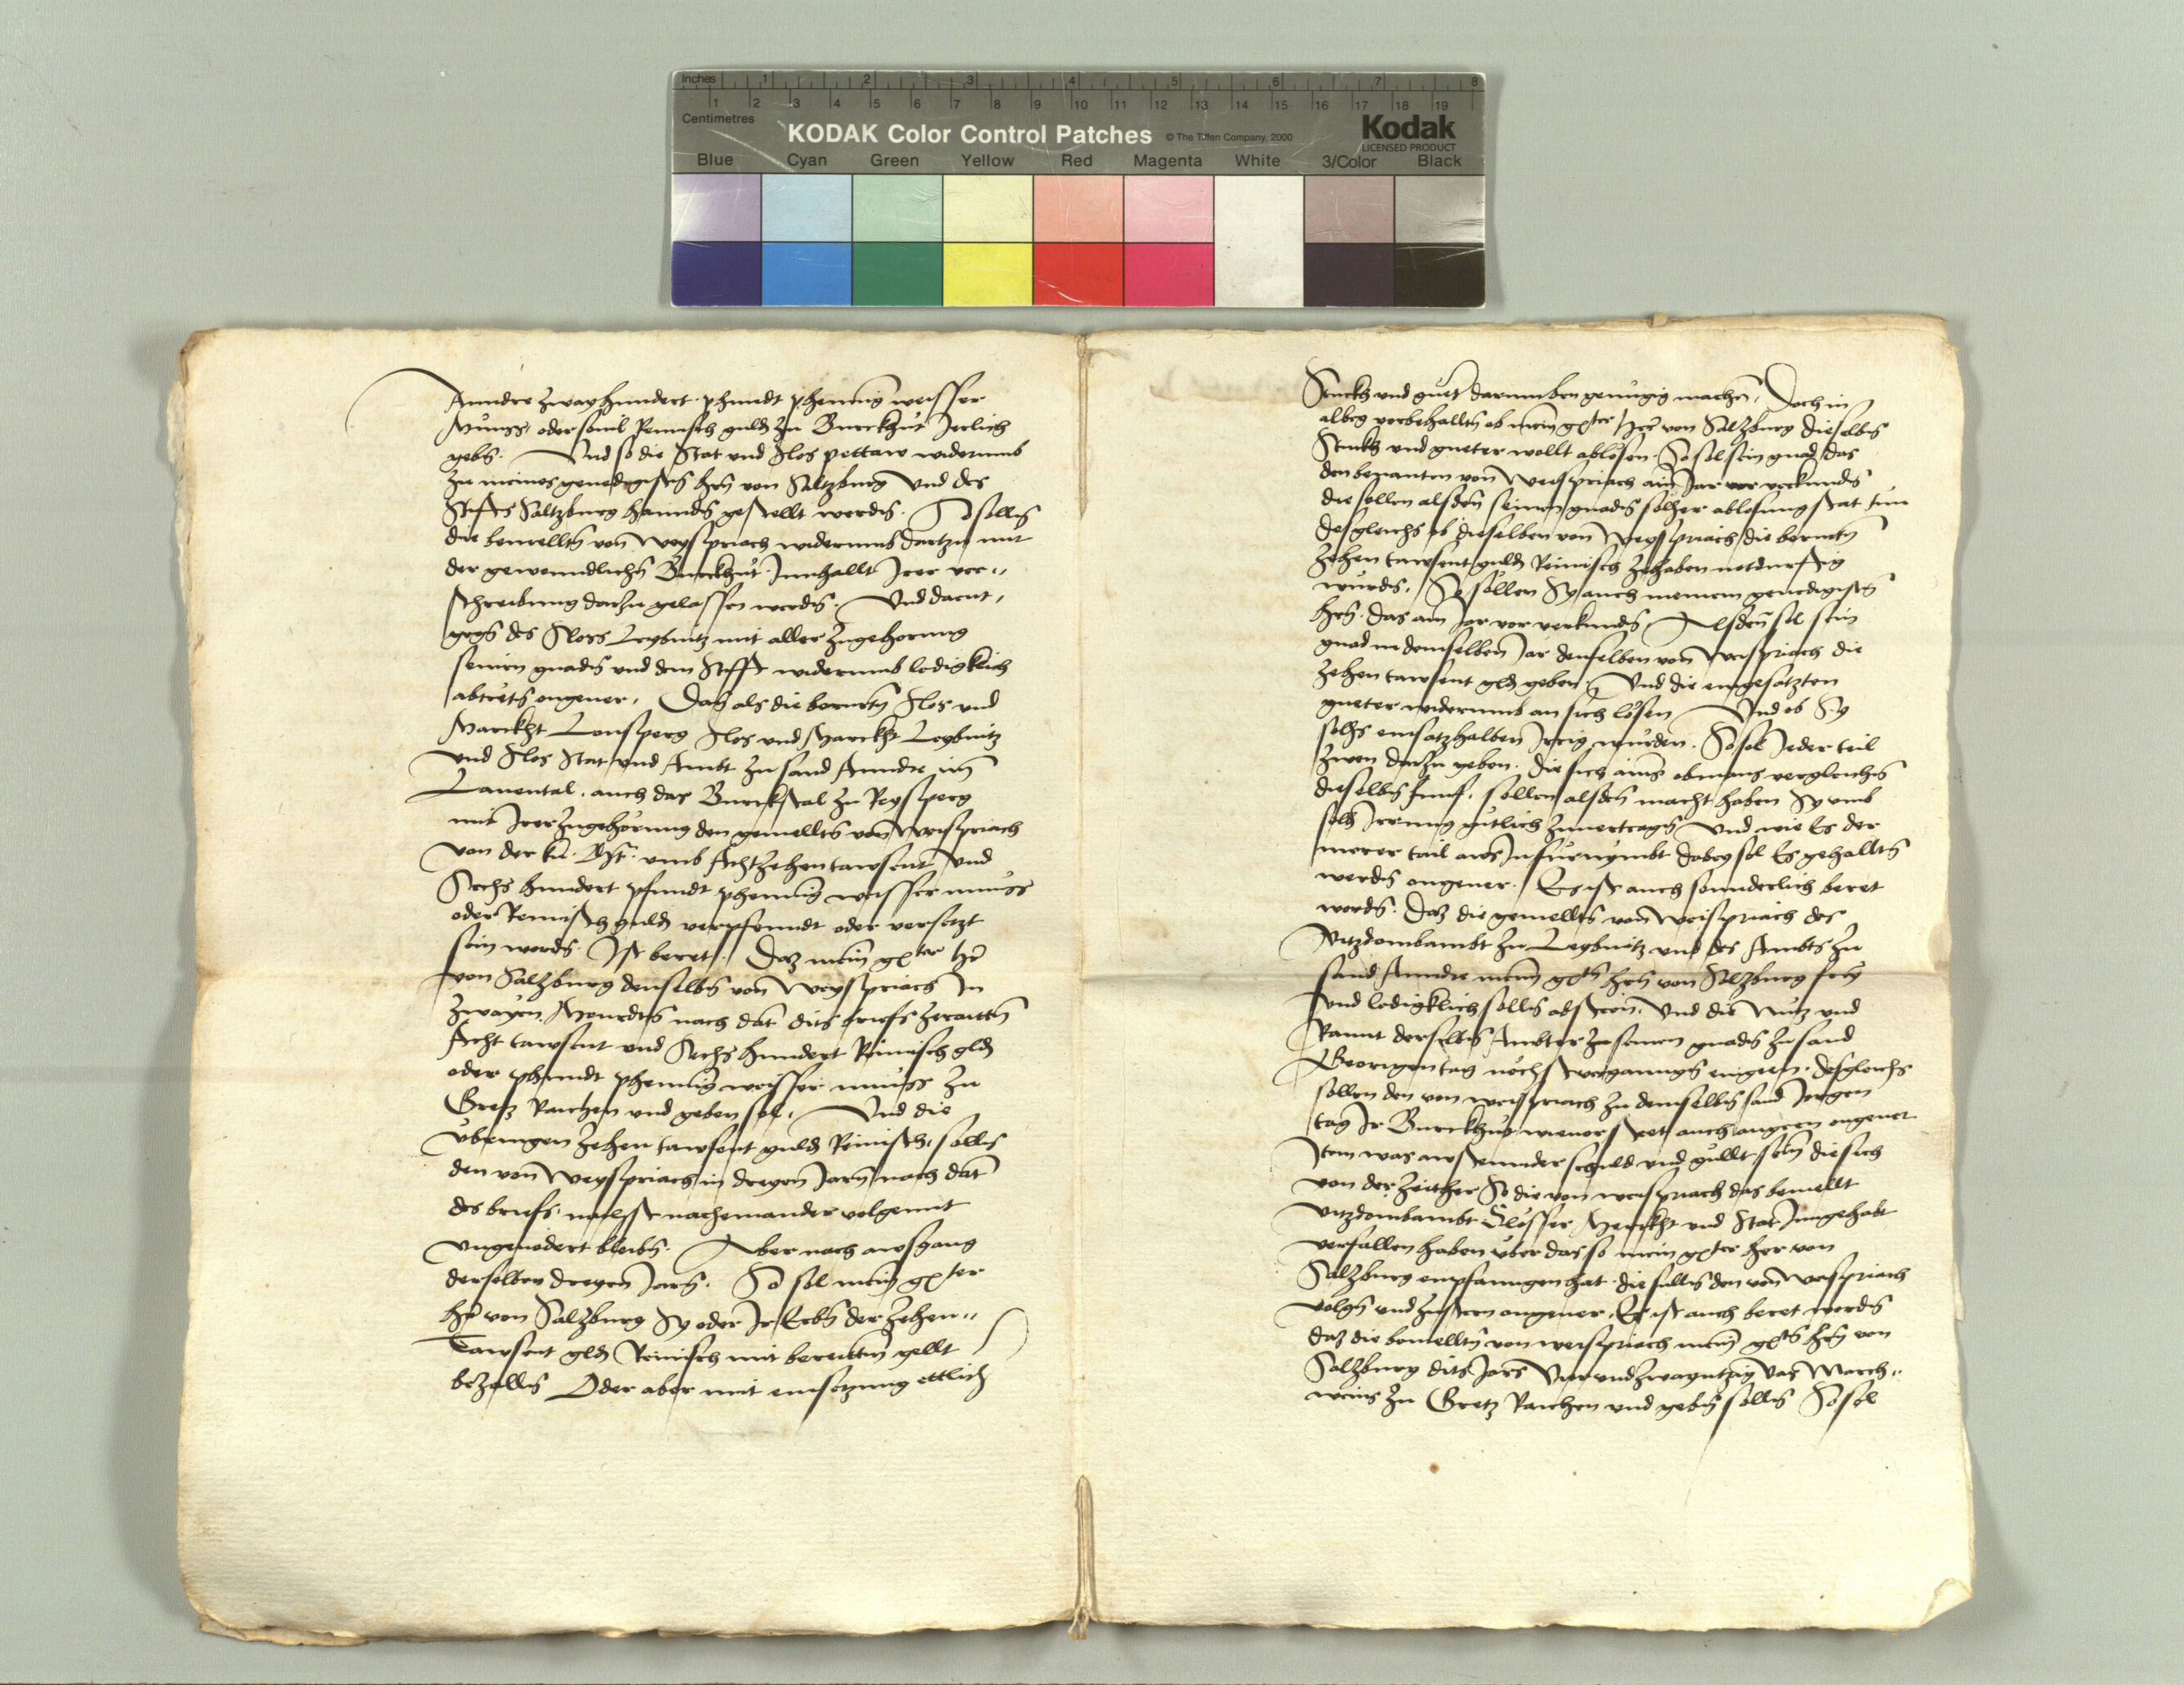 Inches 1 2 3 4 5 6 7 8
1 2 3 4 5 6 7 8 9 10 11 12 13 14 15 16 17 18 19
Centimetres
KODAK Color Control Patches © The Tiffen Company, 2000 Kodak
LICENSED PRODUCT
Blue Cyan Green Yellow Red Magenta White 3/Color Black
Anndre zwayhundert phundt phennig weisser
Munss, oder souil Reinisch guldn zu Burckhut Jerlich
gebn. Und so die Stat und Slos pettaw widerumb
zu meines genedigistn hrn von Saltzburg und des
Stiffts Saltzburg hanndn gestellt werdn. So solln
die bemelltn von Weyspriach widerumb dartzu mit
der gewenndlichn Burckhut Innhallt Irer ver„
schreibung darzu gelassen werdn. Und
des Sloss Leybnitz mit aller zugehorung
seinen gnadn und dem Stifft widerumb ledigklich
abtretn ongeuer. Daz als die Slos und
Marckht Lonsperg Slos und Marckht Leybnitz
und Slos Stat und Ambt zu sand Anndre im
Lauental, auch das Burckstal zu Reysperg
mit Irer zugehörung den gemelltn von Weispriach
von der ku. Mt. umb Achtzehen tawsent und
Sechs hundert pfundt phennig weisser munss
oder Reinisch guldn verpfenndt oder versetzt
sein wordn. Ist beret. Daz mein gster her
von Salzburg denselbn von Weyspriach In
zwayen Moneidtn nach dat dits briefs
Acht tawsent und Sechs hundert Reinisch gldn
oder phundt phennig weisser munss zu
Gretz Raichen und geben sol. Und die
übrigen zehen tawsent guldn Reinisch, solln
den von Weyspriach in dreyen Jarn nach dat
des briefs, nachst nacheinander volgennt
ungeuodert bleibn. Aber nach awsgang
derselben dreyen Jarn. So sol mein gster
her von Salzburg Sy oder Ir Erbn der zehen„
Tawsent gldn Reinisch mit beraittem gellt
bezalln Oder aber mit einsetzung ettlich
Stuckh und guet darumben genugig machen. Doch in
alweg vorbehalltn ob mein gster her von Salzburg dieselbn
Stuckh und gueter wollt ablosen. So sol sein gnad das
den benanten von Weispriach ain Jar vor verkundn
die sollen alsden seinen gnadn solher ablosung stat tun
desgleichn ob dieselben von Weyspriach die
zehen tawsent guldn Reinisch zehaben notdurftig
wurdn. So sollen Sy auch meinem genedigistn
hrn. das ain Jar vor verkundn. Alsden sol sein
gnad in demselben Jar denselben von Weispriach die
zehen tawsent gldn geben. Und die eingesatzten
gueter widerumb an sich lösen Und ob Sy
solhs einsatzhalben Irrig wurden. So sol Jeder teil
zwen darzu geben. die sich ains obmans vergleichn
dieselbn funf, sollen alsden macht haben Sy umb
solh Irrung gutlich zuuertragn Und wie Es der
merer tail aws In furnymbt dabey sol Es gehalltn
werdn ongeuer. Es ist auch sonnderlich beret
wordn. Daz die gemelltn von Weispriach des
Vitzdombambt zu Leybnitz und des Ambts zu
sand Anndre meim gstn hrn von Salzburg frey
und ledigklich solln absteen. Und die Nutz und
Rannt derselbn Ambter zu seinen gnadn zu sand
Georigen tag nechst vergangn eingeen. desgleichs
sollen den von weispriach zu demselbn sand Jorgen
tag Ir Burckhut auch angeen ongeuer
Item was awstennder schuld und gullt sein die sich
von der zeither So die von weispriach das bemellt
vitzdombambt Slösser Merckht und Stat Inngehabt
verfallen haben über das so mein gster her von
Salzburg empfanngen hat. die sulln den von weispriach
volgn und zusteen ongeuer. Es ist auch beret wordn
daz die bemelltn von weispriach meim gstn hrn von
Salzburg dits Jars undzwayntzig vas March„
weins zu Gretz Raichen und gebn solln So sol